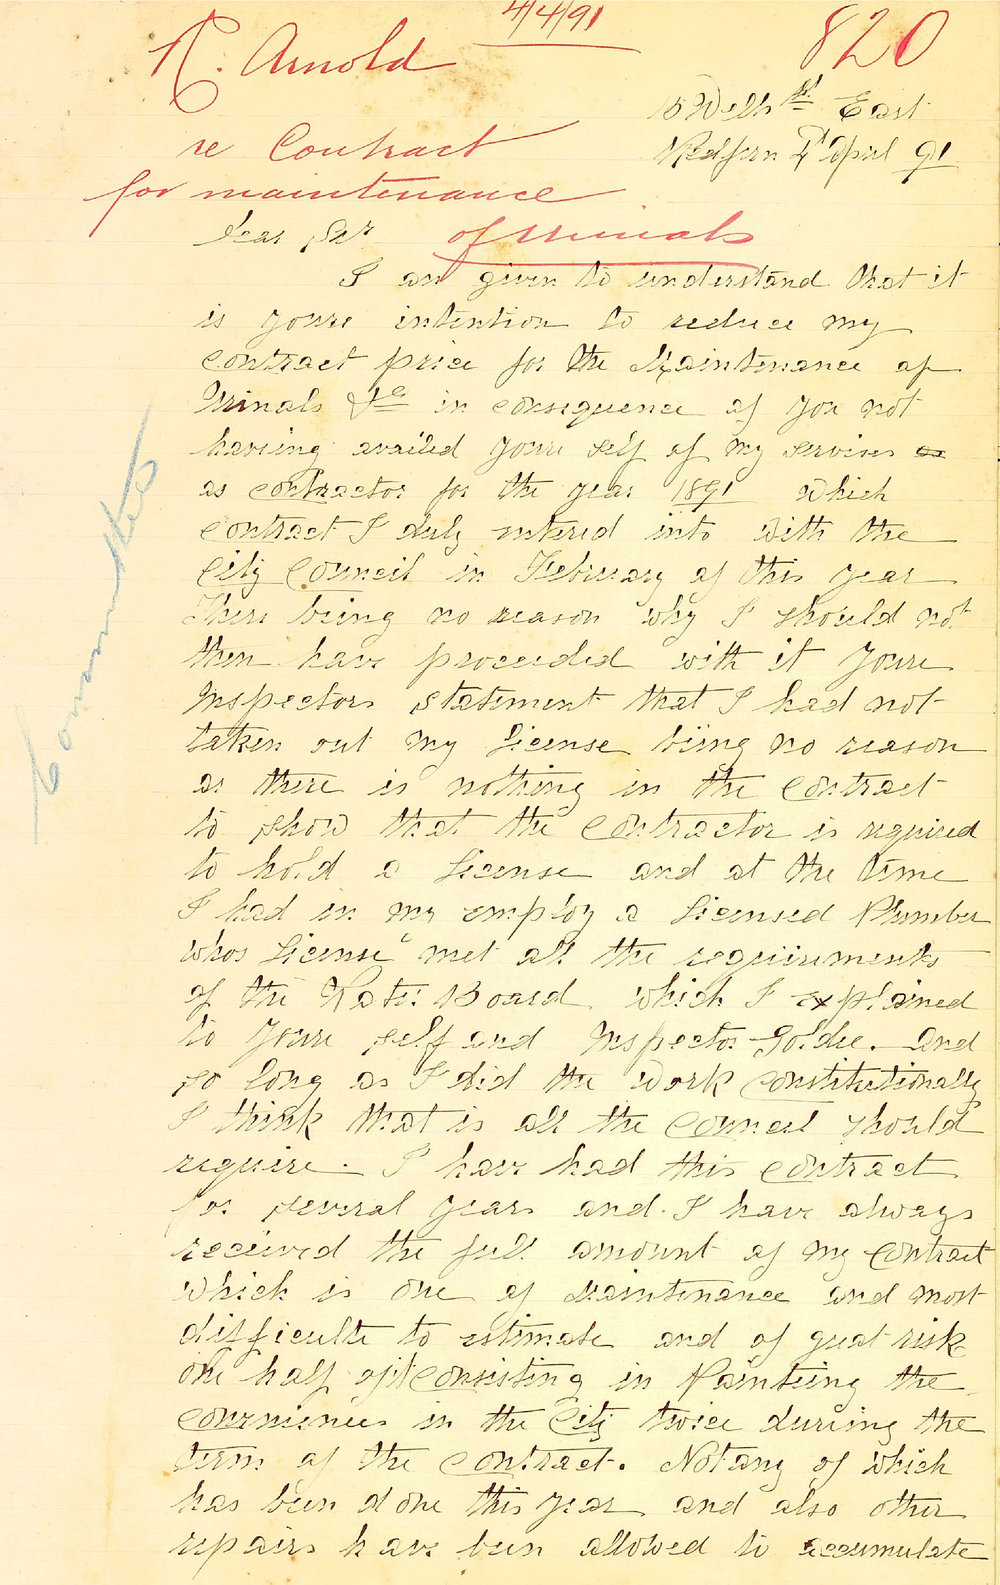 4/4/91
820
R. Arnold
re Contract
for maintenance
of urinals
15 Wells St East
Redfern 4th April 91
Dear Sir
I am given to understand that it
is youre intention to reduce my
contract price for the Maintenance of
Urinals &c in consequence of you not
having availed youre self of my servises as
as contractor for the year 1891 which
contract I duly entered into with the
City Council in February of this year
There being no reason why I should not
then have proceeded with it youre
Inspectors statement that I had not
taken out my License being no reason
as there is nothing in the contract
to show that the contractor is required
to hold a License and at the time
I had in my employ a Licensed Plumber
whos License met all the requirements
of the Water Board which I explained
to youre self and Inspector Goldie. and
so long as I did the work constitutionally
I think that is all the Council should
require. I have had this contract
for several years and I have always
received the full amount of my contract
which is one of Maintenance and most
difficulte to estimate and of great risk
one half of it consisting in Painteing the
conveniences in the City twice dureing the
term of the contract. Not any of which
has been done this year and also other
repairs have been allowed to accumulate
Committee